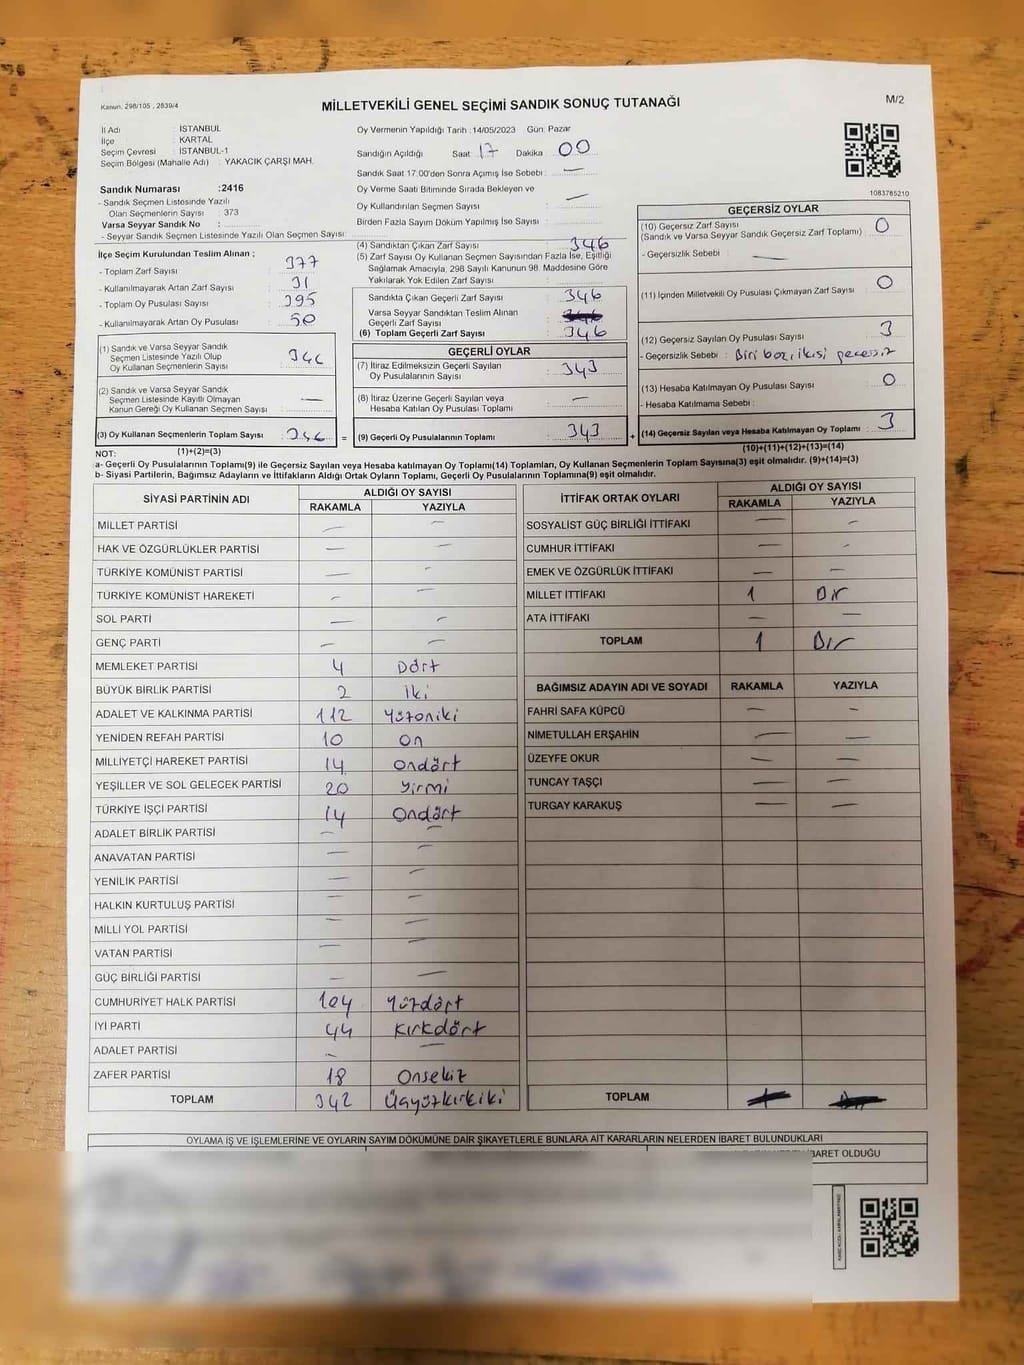 Kanun, 298/105 , 2839/4
MİLLETVEKİLİ GENEL SEÇİMİ SANDIK SONUÇ TUTANAĞI
M/2
İl Adı : İSTANBUL
İlçe : KARTAL
Seçim Çevresi : İSTANBUL-1
Seçim Bölgesi (Mahalle Adı) : YAKACIK ÇARŞI MAH.
Sandık Numarası :2416
- Sandık Seçmen Listesinde Yazılı
Olan Seçmenlerin Sayısı : 373
Varsa Seyyar Sandık No :
- Seyyar Sandık Seçmen Listesinde Yazılı Olan Seçmen Sayısı:
Oy Vermenin Yapıldığı Tarih :14/05/2023 Gün: Pazar
Sandığın Açıldığı Saat : 17 Dakika : 00
Sandık Saat 17:00'den Sonra Açımış İse Sebebi : —
Oy Verme Saati Bitiminde Sırada Bekleyen ve
Oy Kullandırılan Seçmen Sayısı : —
Birden Fazla Sayım Döküm Yapılmış İse Sayısı :
1083785210
İlçe Seçim Kurulundan Teslim Alınan ;
- Toplam Zarf Sayısı : 377
- Kullanılmayarak Artan Zarf Sayısı : 31
- Toplam Oy Pusulası Sayısı : 395
- Kullanılmayarak Artan Oy Pusulası : 50
(1) Sandık ve Varsa Seyyar Sandık
Seçmen Listesinde Yazılı Olup
Oy Kullanan Seçmenlerin Sayısı : 346
(2) Sandık ve Varsa Seyyar Sandık
Seçmen Listesinde Kayıtlı Olmayan
Kanun Gereği Oy Kullanan Seçmen Sayısı : —
(3) Oy Kullanan Seçmenlerin Toplam Sayısı : 346 =
(4) Sandıktan Çıkan Zarf Sayısı : 346
(5) Zarf Sayısı Oy Kullanan Seçmen Sayısından Fazla İse, Eşitliği
Sağlamak Amacıyla, 298 Sayılı Kanunun 98. Maddesine Göre
Yakılarak Yok Edilen Zarf Sayısı :
Sandıkta Çıkan Geçerli Zarf Sayısı : 346
Varsa Seyyar Sandıktan Teslim Alınan
Geçerli Zarf Sayısı :
(6) Toplam Geçerli Zarf Sayısı : 346
GEÇERLİ OYLAR
(7) İtiraz Edilmeksizin Geçerli Sayılan
Oy Pusulalarının Sayısı : 343
(8) İtiraz Üzerine Geçerli Sayılan veya
Hesaba Katılan Oy Pusulası Toplamı : —
(9) Geçerli Oy Pusulalarının Toplamı : 343 +
GEÇERSİZ OYLAR
(10) Geçersiz Zarf Sayısı : 0
(Sandık ve Varsa Seyyar Sandık Geçersiz Zarf Toplamı)
- Geçersizlik Sebebi : —
(11) İçinden Milletvekili Oy Pusulası Çıkmayan Zarf Sayısı : 0
(12) Geçersiz Sayılan Oy Pusulası Sayısı : 3
- Geçersizlik Sebebi : Biri boş, ikisi geçersiz
(13) Hesaba Katılmayan Oy Pusulası Sayısı : 0
- Hesaba Katılmama Sebebi :
(14) Geçersiz Sayılan veya Hesaba Katılmayan Oy Toplamı : 3
NOT: (1)+(2)=(3) (10)+(11)+(12)+(13)=(14)
a- Geçerli Oy Pusulalarının Toplamı(9) ile Geçersiz Sayılan veya Hesaba katılmayan Oy Toplamı(14) Toplamları, Oy Kullanan Seçmenlerin Toplam Sayısına(3) eşit olmalıdır. (9)+(14)=(3)
b- Siyasi Partilerin, Bağımsız Adayların ve İttifakların Aldığı Ortak Oyların Toplamı, Geçerli Oy Pusulalarının Toplamına(9) eşit olmalıdır.
SİYASİ PARTİNİN ADI ALDIĞI OY SAYISI
RAKAMLA YAZIYLA
MİLLET PARTİSİ — —
HAK VE ÖZGÜRLÜKLER PARTİSİ — —
TÜRKİYE KOMÜNİST PARTİSİ — —
TÜRKİYE KOMÜNİST HAREKETİ — —
SOL PARTİ — —
GENÇ PARTİ — —
MEMLEKET PARTİSİ 4 Dört
BÜYÜK BİRLİK PARTİSİ 2 İki
ADALET VE KALKINMA PARTİSİ 112 Yüzoniki
YENİDEN REFAH PARTİSİ 10 On
MİLLİYETÇİ HAREKET PARTİSİ 14 Ondört
YEŞİLLER VE SOL GELECEK PARTİSİ 20 Yirmi
TÜRKİYE İŞÇİ PARTİSİ 14 Ondört
ADALET BİRLİK PARTİSİ — —
ANAVATAN PARTİSİ — —
YENİLİK PARTİSİ — —
HALKIN KURTULUŞ PARTİSİ — —
MİLLİ YOL PARTİSİ — —
VATAN PARTİSİ — —
GÜÇ BİRLİĞİ PARTİSİ — —
CUMHURİYET HALK PARTİSİ 104 Yüzdört
İYİ PARTİ 44 Kırkdört
ADALET PARTİSİ — —
ZAFER PARTİSİ 18 Onsekiz
TOPLAM 342 Üçyüzkırkiki
İTTİFAK ORTAK OYLARI ALDIĞI OY SAYISI
RAKAMLA YAZIYLA
SOSYALİST GÜÇ BİRLİĞİ İTTİFAKI — —
CUMHUR İTTİFAKI — —
EMEK VE ÖZGÜRLÜK İTTİFAKI — —
MİLLET İTTİFAKI 1 Bir
ATA İTTİFAKI — —
TOPLAM 1 Bir
BAĞIMSIZ ADAYIN ADI VE SOYADI RAKAMLA YAZIYLA
FAHRİ SAFA KÜPCÜ — —
NİMETULLAH ERŞAHİN — —
ÜZEYFE OKUR — —
TUNCAY TAŞÇI — —
TURGAY KARAKUŞ — —
TOPLAM
OYLAMA İŞ VE İŞLEMLERİNE VE OYLARIN SAYIM DÖKÜMÜNE DAİR ŞİKAYETLERLE BUNLARA AİT KARARLARIN NELERDEN İBARET BULUNDUKLARI
İBARET OLDUĞU